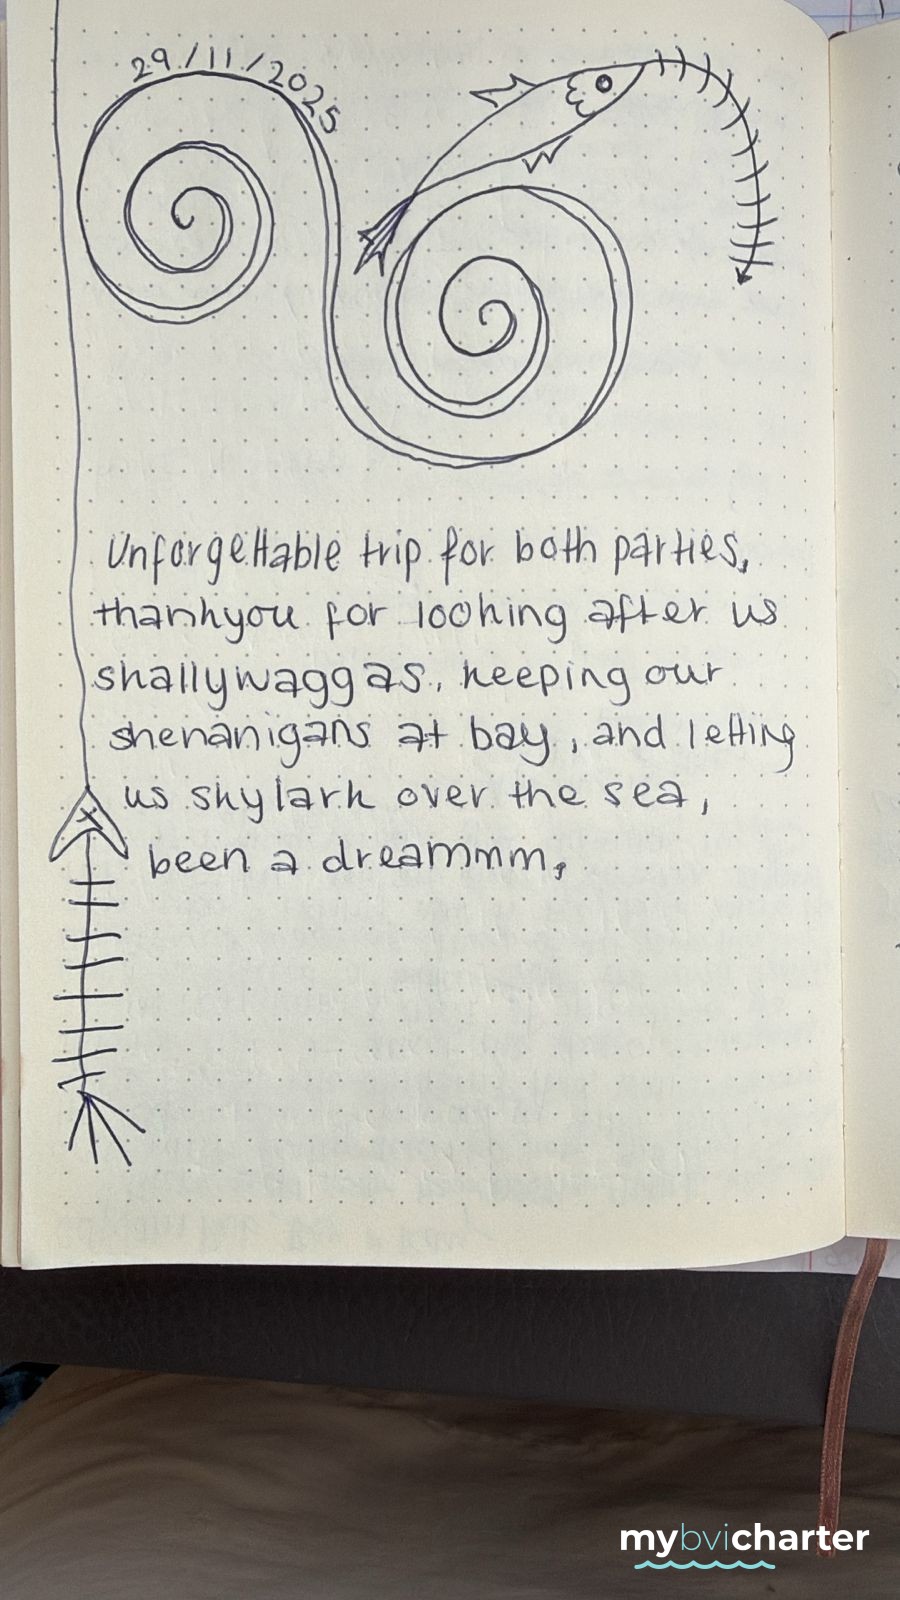 29/11/2025
Unforgettable trip for both parties,
thankyou for looking after us
shallywaggas, keeping our
shenanigans at bay, and letting
us skylark over the sea,
been a dreammm,
mybvicharter